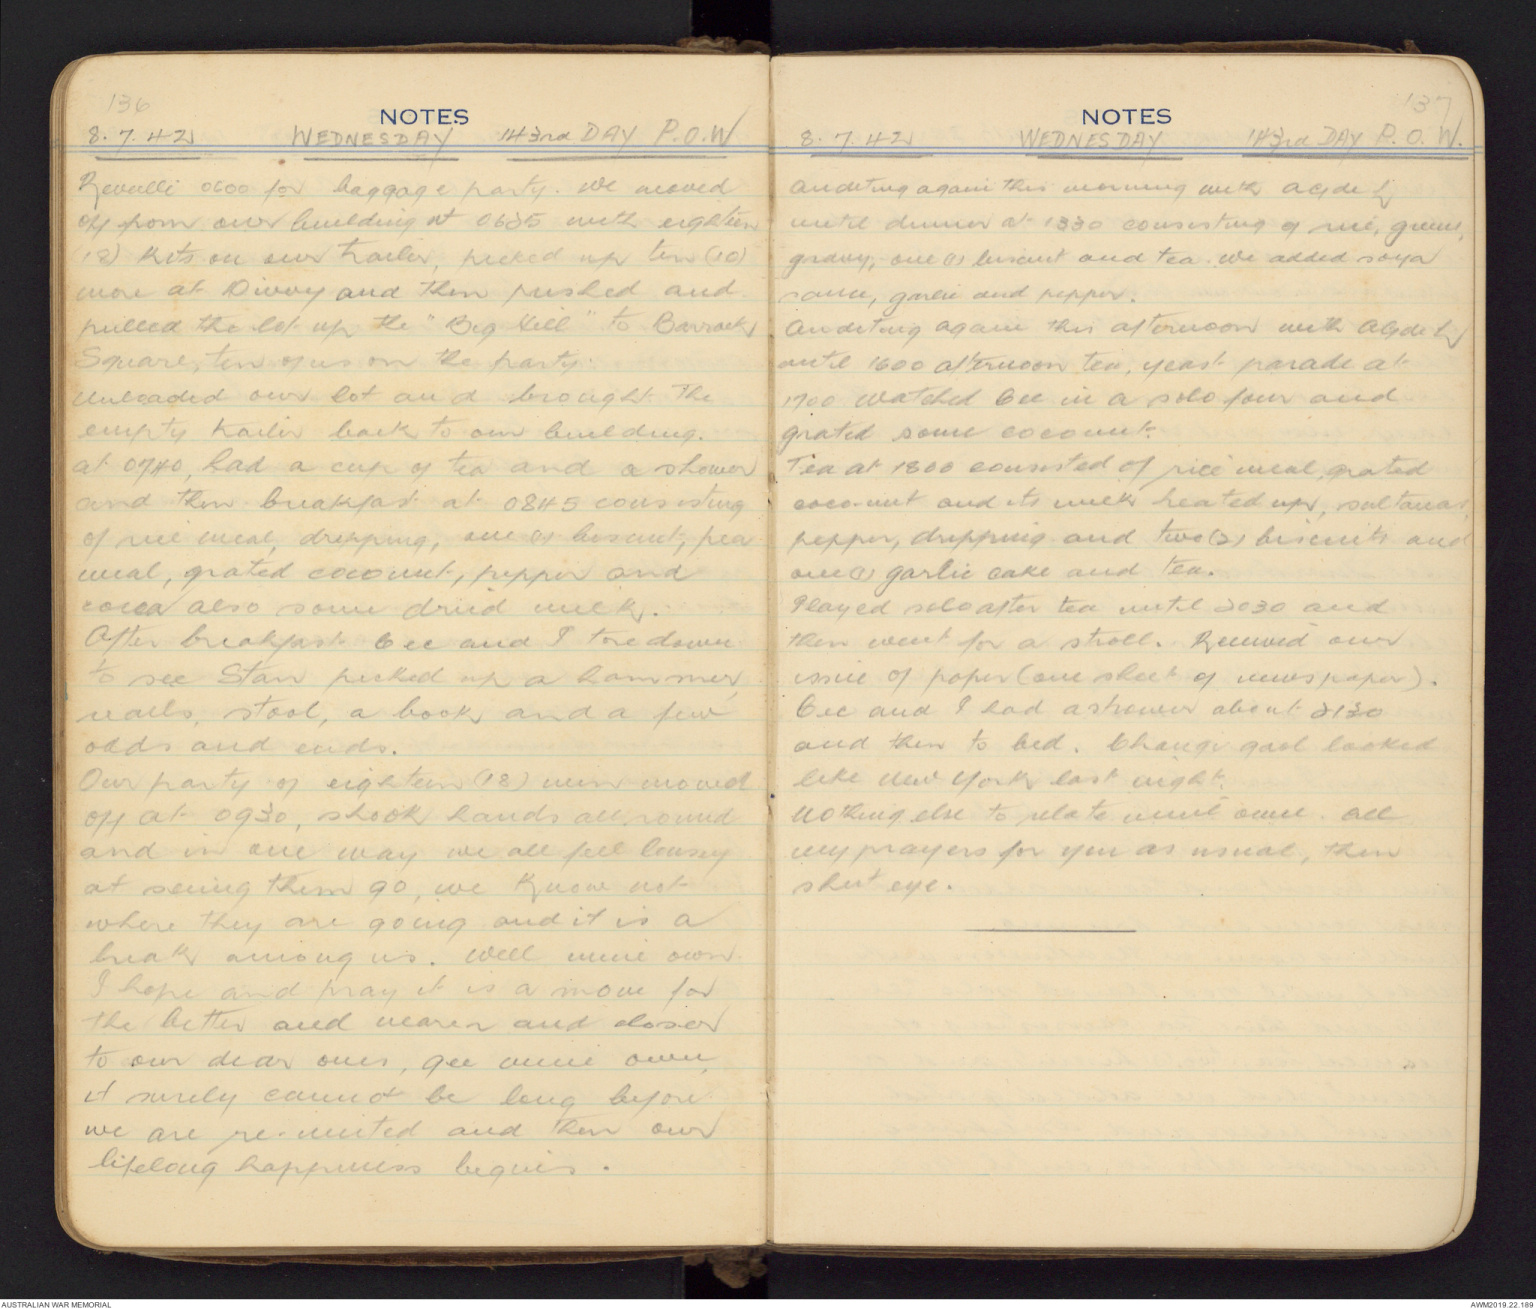 136
NOTES
8.7.42 WEDNESDAY 143rd DAY P.O.W
Revelli 0600 for baggage party. We moved
off from our building at 0635 with eighteen
(18) kits on our trailer, picked up ten (10)
more at Divvy and then pushed and
pulled the lot up the "Big Hill" to Barrack
Square, ten of us on the party.
Unloaded our lot and brought the
empty trailer back to our building.
at 0740, had a cup of tea and a shower
and then breakfast at 0845 consisting
of rice meal, dripping, one (1) biscuit, pea
meal, grated coconut, pepper and
cocoa also some dried milk.
After breakfast Cec and I tore down
to see Stan picked up a hammer,
nails, stool, a book and a few
odds and ends.
Our party of eighteen (18) men moved
off at 0930, shook hands all round
and in one way we all feel lousey
at seeing them go, we know not
where they are going and it is a
break among us. Well mine own
I hope and pray it is a move for
the better and nearer and closer
to our dear ones, gee mine own,
it surely cannot be long before
we are re-united and then our
lifelong happiness begins.
137
NOTES
8.7.42 WEDNESDAY 143rd DAY P.O.W.
Auditing again this morning with
until dinner at 1330 consisting of rice, greens,
gravy, one (1) biscuit and tea. We added soya
sauce, garlic and pepper.
Auditing again this afternoon with
until 1600 afternoon tea, yeast parade at
1700 watched Cec in a solo four and
grated some coconut.
Tea at 1800 consisted of rice meal, grated
coconut and its milk heated up, sultanas,
pepper, dripping and two (2) biscuits and
one (1) garlic cake and tea.
Played solo after tea until 2030 and
then went for a stroll. Received our
issue of paper (one sheet of newspaper).
Cec and I had a shower about 2130
and then to bed. Changi gaol looked
like New York last night.
Nothing else to relate mine own. All
my prayers for you as usual, then
shut eye.
AUSTRALIAN WAR MEMORIAL
AWM2019.22.189